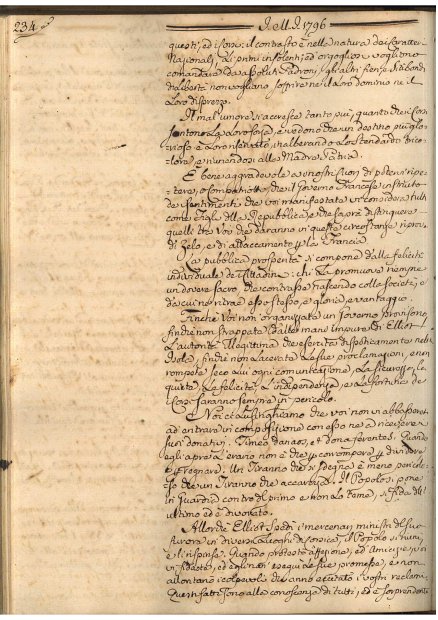 234
I. M. I. 1796
questi, ed i Corsi; il contrasto è nella natura dei Caratteri
Nazionali, i primi insolenti, ed orgogliosi vogliono
comandare da assoluti Padroni, gli altri fieri, e
di libertà non vogliono soffrire nè il loro dominio nè il
loro disprezzo.
Il mal'umore si accresce tanto più, quanto che i Corsi
sentono la loro forza, e vedono che un destino più glo-
rioso è loro riservato inalberando lo stendardo trico-
lore, e riunendosi alla Madre Patria.
È bene aggradevole a' nostri cuori di potervi ripe-
tere, o Compatriotti, che il Governo Francese instruito
de' sentimenti che voi manifestate vi considera tutti
come Figli della Repubblica, e che saprà distinguere
quelli tra voi che daranno in queste circostanze riprove
di Zelo, e di attaccamento per la Francia.
La pubblica prosperità si compone dalla felicità
individuale de' Cittadini: chi la promuove riempie
un dovere sacro che contrasse nascendo colla Società, e
da cui ne ritrae esso stesso, e gloria, e vantaggio.
Finchè Voi non organizzate un Governo provisorio,
finchè non strappate dalle mani impure di Elliot
l'autorità illegittima che esercita dispoticamente nell'
Isola, finchè non lacerate le sue proclamazioni, e non
rompete seco lui ogni comunicazione, la sicurezza, la
quiete, la felicità, l'indipendenza, e la fortuna de'
Corsi saranno sempre in pericolo.
E Noi ci lusinghiamo che voi non vi abbasserete
ad entrare in composizione con esso nè a ricevere i
suoi donativi. Timeo Danaos, et dona ferentes. Quando
egli apre l'erario non è che per corrompere, per dividere
e per regnare. Un Tiranno che si sdegna è meno pericolo-
so che un Tiranno che accarezza. Il Popolo si pone
in guardia contro il primo e non lo teme, si fida dell'
ultimo ed è divorato.
Allorchè Elliot spedì i mercenari ministri del suo
furore in diversi luoghi di Corsica, il Popolo si riunì,
e li rispinse. Quando protestò affezione, ed amicizia voi
vi fidaste, ed egli non eseguì le sue promesse, e non
allontanò i colpevoli che avevano eccitato i vostri reclami.
Questi fatti sono alla conoscenza di tutti, ed è sorprendente